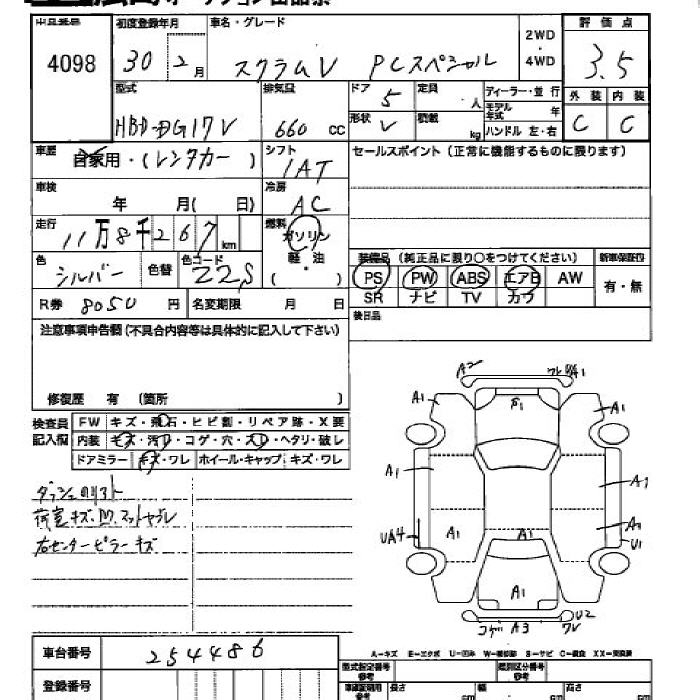 出品番号 初度登録年月 車名・グレード 2WD・4WD 評価点
4098 30 2月 スクラムV PCスペシャル 3.5
型式 排気量 ドア 5 定員 人 ディーラー・並行 外装 内装
HBD-DG17V 660 cc 形状 V 積載 kg モデル年式 年 ハンドル 左・右 C C
車歴 自家用・(レンタカー) シフト 1AT セールスポイント(正常に機能するものに限ります)
車検 年 月( 日) 冷房 AC
走行 11万8千267km 燃料 ガソリン 軽油 ( )
色 シルバー 色替 色コード Z2S
装備品(純正品に限り○をつけてください) 新車保証印
PS PW ABS エアB AW 有・無
SR ナビ TV カワ
R券 8050円 名変期限 月 日 後日品
注意事項申告欄(不具合内容等は具体的に記入して下さい)
修復歴 有 (箇所 )
検査員記入欄 FW キズ・飛石・ヒビ割・リペア跡・X要
内装 キズ・汚レ・コゲ・穴・スレ・ヘタリ・破レ
ドアミラー キズ・ワレ ホイール・キャップ キズ・ワレ
荷室キズ・凹、マットヤブレ
右センターピラーキズ
A2 A1
A1 F1 A1
A1 A1
UA4 A1 A1 A1 U1
A1
コゲ A3 ワレ U2
A-キズ E-エクボ U-凹み W-補修跡 S-サビ C-腐食 XX-交換済
車台番号 254486 型式指定番号 参考 類別区分番号 参考
登録番号 車検証期用 参考 長さ cm 幅 cm 高さ cm